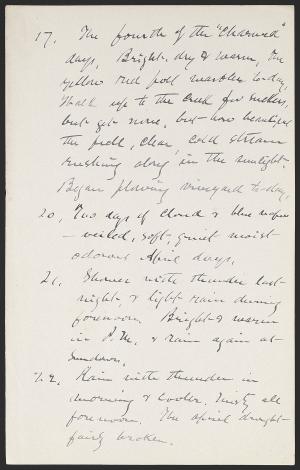 17. The fourth of the "Charmed"
days. Bright, dry & warm, the
yellow red poll warbler to-day.
Walk up to the creek for suckers,
but get none, but how beautiful
the full, clear, cold stream
rushing along in the sunlight.
Began plowing vineyard to-day.
20, Two days of cloud & blue vapor
– veiled, soft, quiet moist
odorous April days.
21. Shower with thunder last-
night, & light rain during
forenoon. Bright & warm
in P.M. & rain again at
sundown.
22. Rain with thunder in
morning & cooler. Misty all
forenoon. The April drought-
fairly broken.